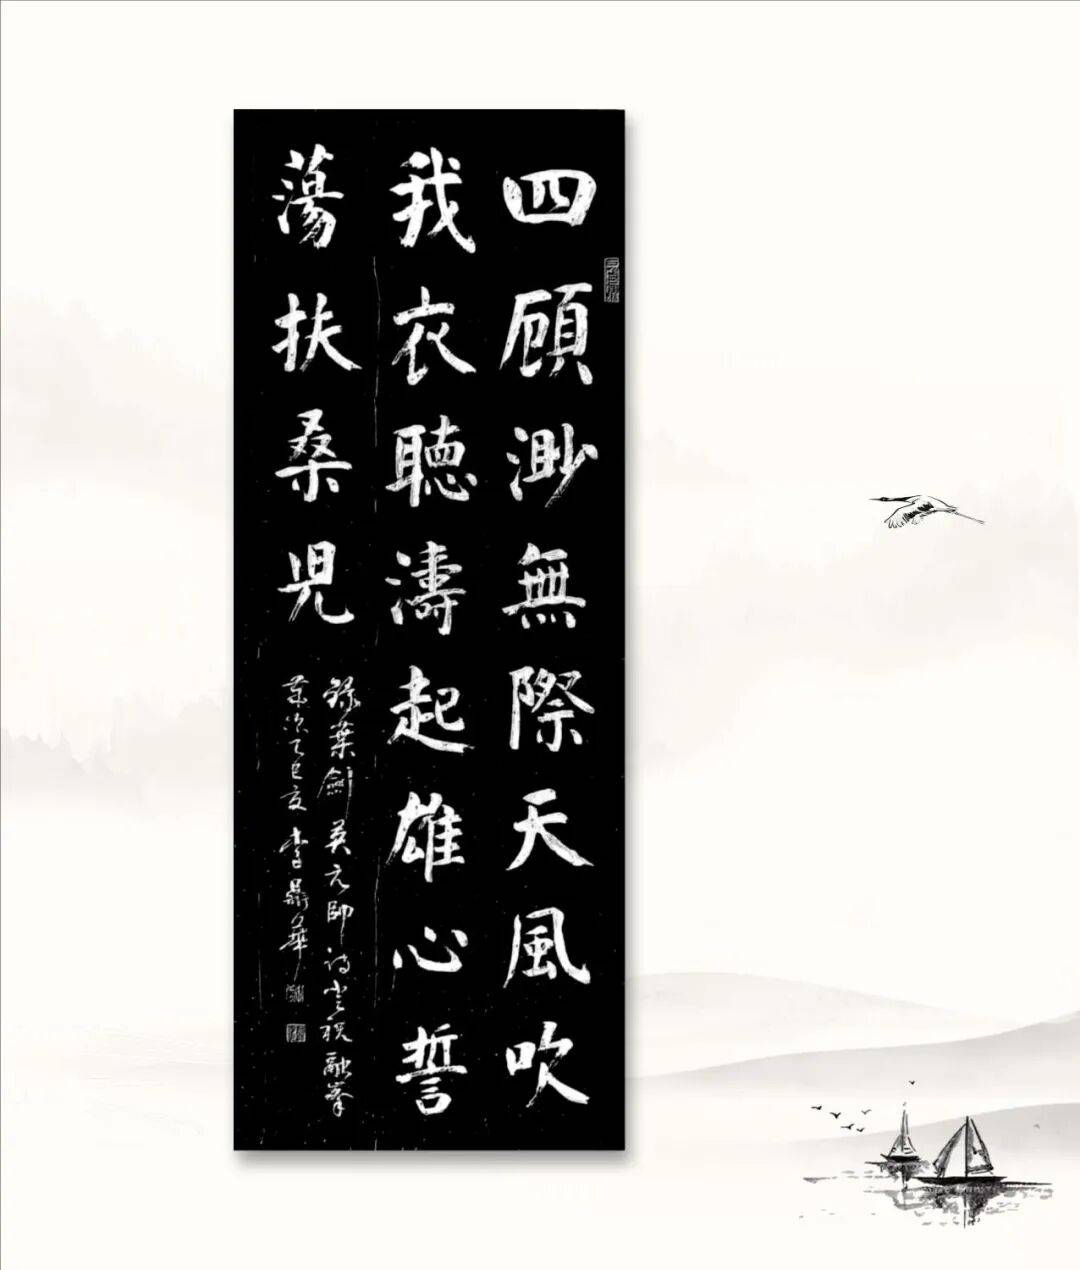 四顧渺無際天風吹
我衣聽濤起雄心誓
蕩扶桑兒
錄葉劍英元帥詩登祝融峯
歲次乙巳夏李聶華